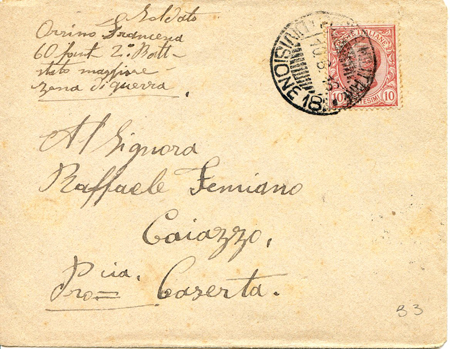 Soldato
Orrino Francena
60 fant 2° Batt
stato maggiore
zona di guerra.
DIVISIONE 18
10
10
Al Signora
Raffaele Femiano
Caiazzo,
P cia.
Pro= Caserta.
33